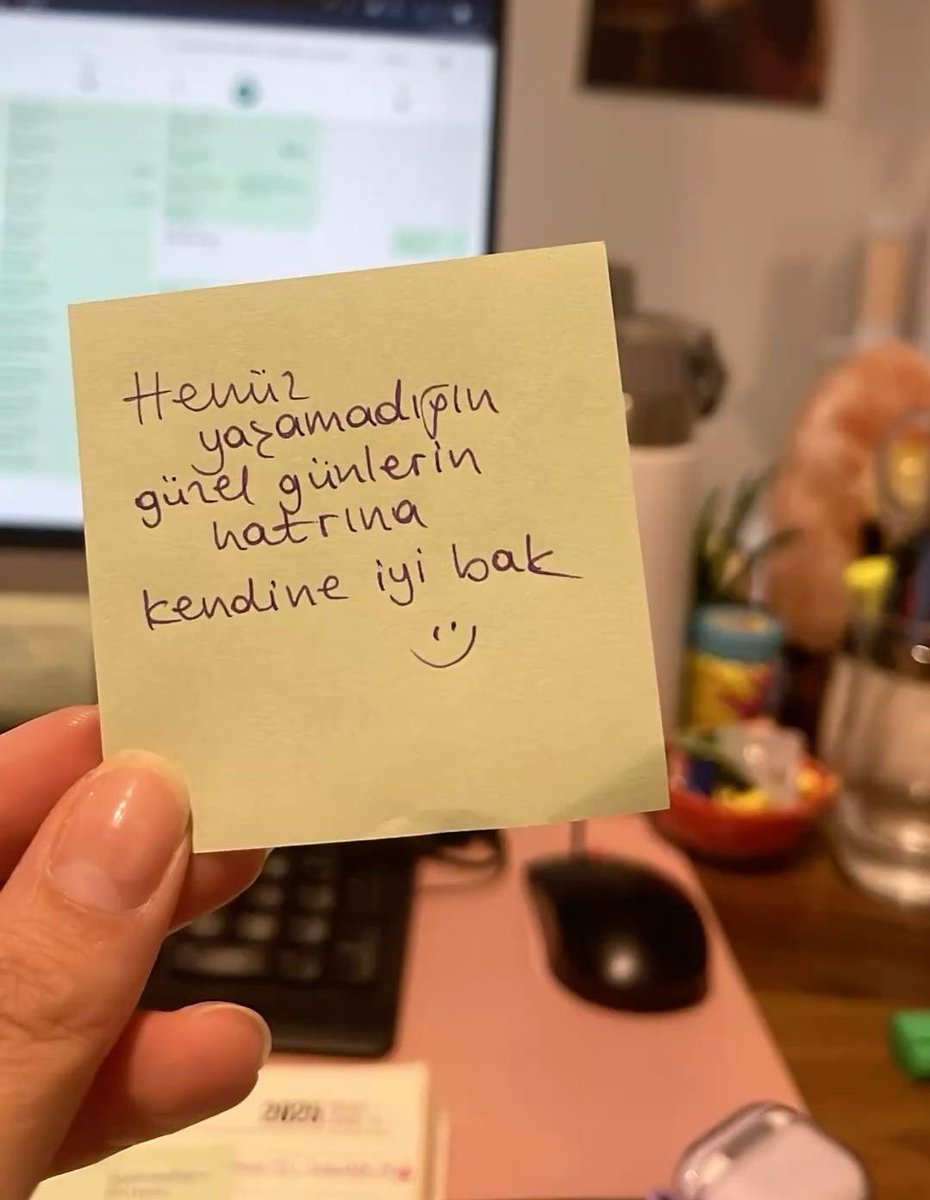 Henüz
yaşamadığın
güzel günlerin
hatrına
kendine iyi bak